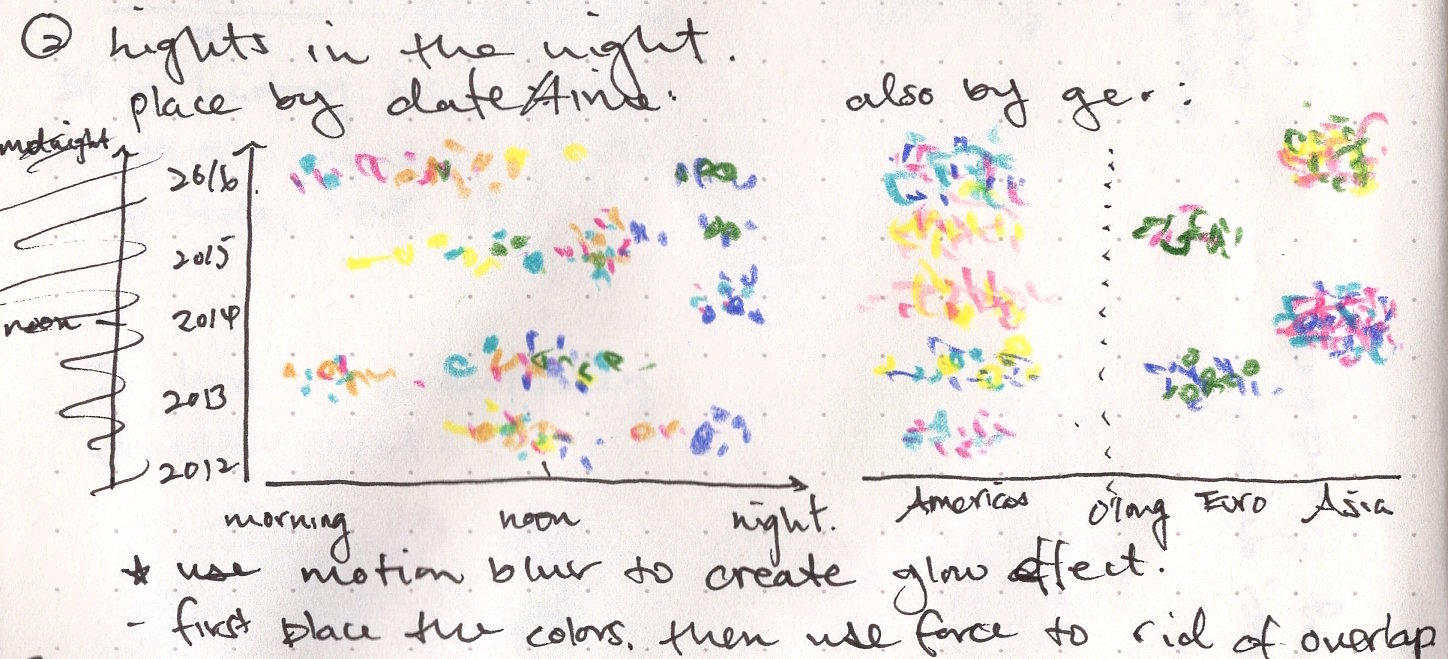 ② Lights in the night.
place by date/time:
also by geo:
midnight
2016
2015
noon
2014
2013
2012
morning noon night.
Americas 0°long Euro Asia
* use motion blur to create glow effect.
- first place the colors, then use force to rid of overlap